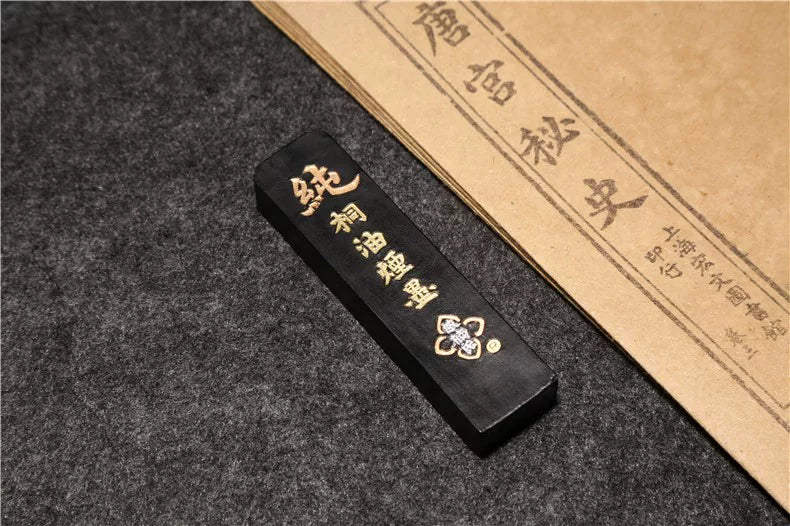 純桐油煙墨
唐宮秘史
上海宏文圖書館
印行
卷三